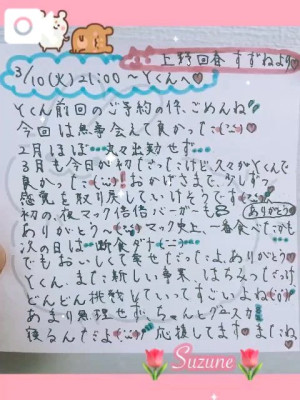 上野回春 すずねより
3/10(火)21:00〜Yくんへ
Yくん前回のご予約の件、ごめんね
今回は無事会えて良かった
2月ほぼ…丸々出勤せず…
3月も今日が初だったけど久々がYくんで
良かった!おかげさまで、少しずつ
感覚を取り戻していけそうです
初の、夜マック倍倍バーガーも ありがとう
ありがとう〜マック史上、一番食べたかも
次の日は…断食ダナ
でもおいしくて幸せだったよ、ありがとう
Yくん、また新しい事業、はちみつだっけ
どんどん挑戦していってすごいよね
あまり無理せず、ちゃんと
寝るんだよ 応援してます。またね
Suzune